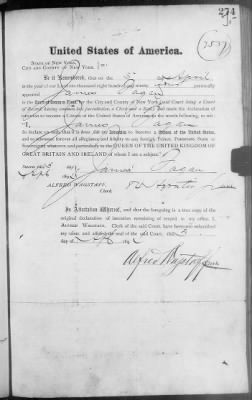 274
United States of America.
STATE OF NEW YORK,
CITY AND COUNTY OF NEW YORK,
It is Remembered, that on the day of April
in the year of our Lord one thousand eight hundred and ninety personally
appeared James Fagan
in the Court of Common Pleas, for the City and County of New York (said Court being a Court
of Record, having common law jurisdiction, a Clerk and a Seal), and made his declaration of
intention to become a Citizen of the United States, in the words following, to wit:
"I, James Fagan
do declare on oath, that it is bona fide my intention to become a Citizen of the United States,
and to renounce forever all allegiance and fidelity to any foreign Prince, Potentate, State or
Sovereignty whatever, and particularly to the QUEEN OF THE UNITED KINGDOM OF
GREAT BRITAIN AND IRELAND of whom I am a subject."
Sworn this
James Fagan
ALFRED WAGSTAFF,
Clerk.
In Attestation Whereof, and that the foregoing is a true copy of the
original declaration of intention remaining of record in my office, I,
ALFRED WAGSTAFF, Clerk of the said Court, have hereunto subscribed
my name and affixed the seal of the said Court, this
day of
Alfred Wagstaff Clerk